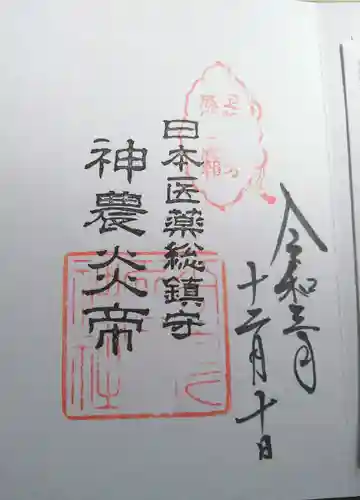 令和三年
十二月十日
日本医薬総鎮守
神農炎帝